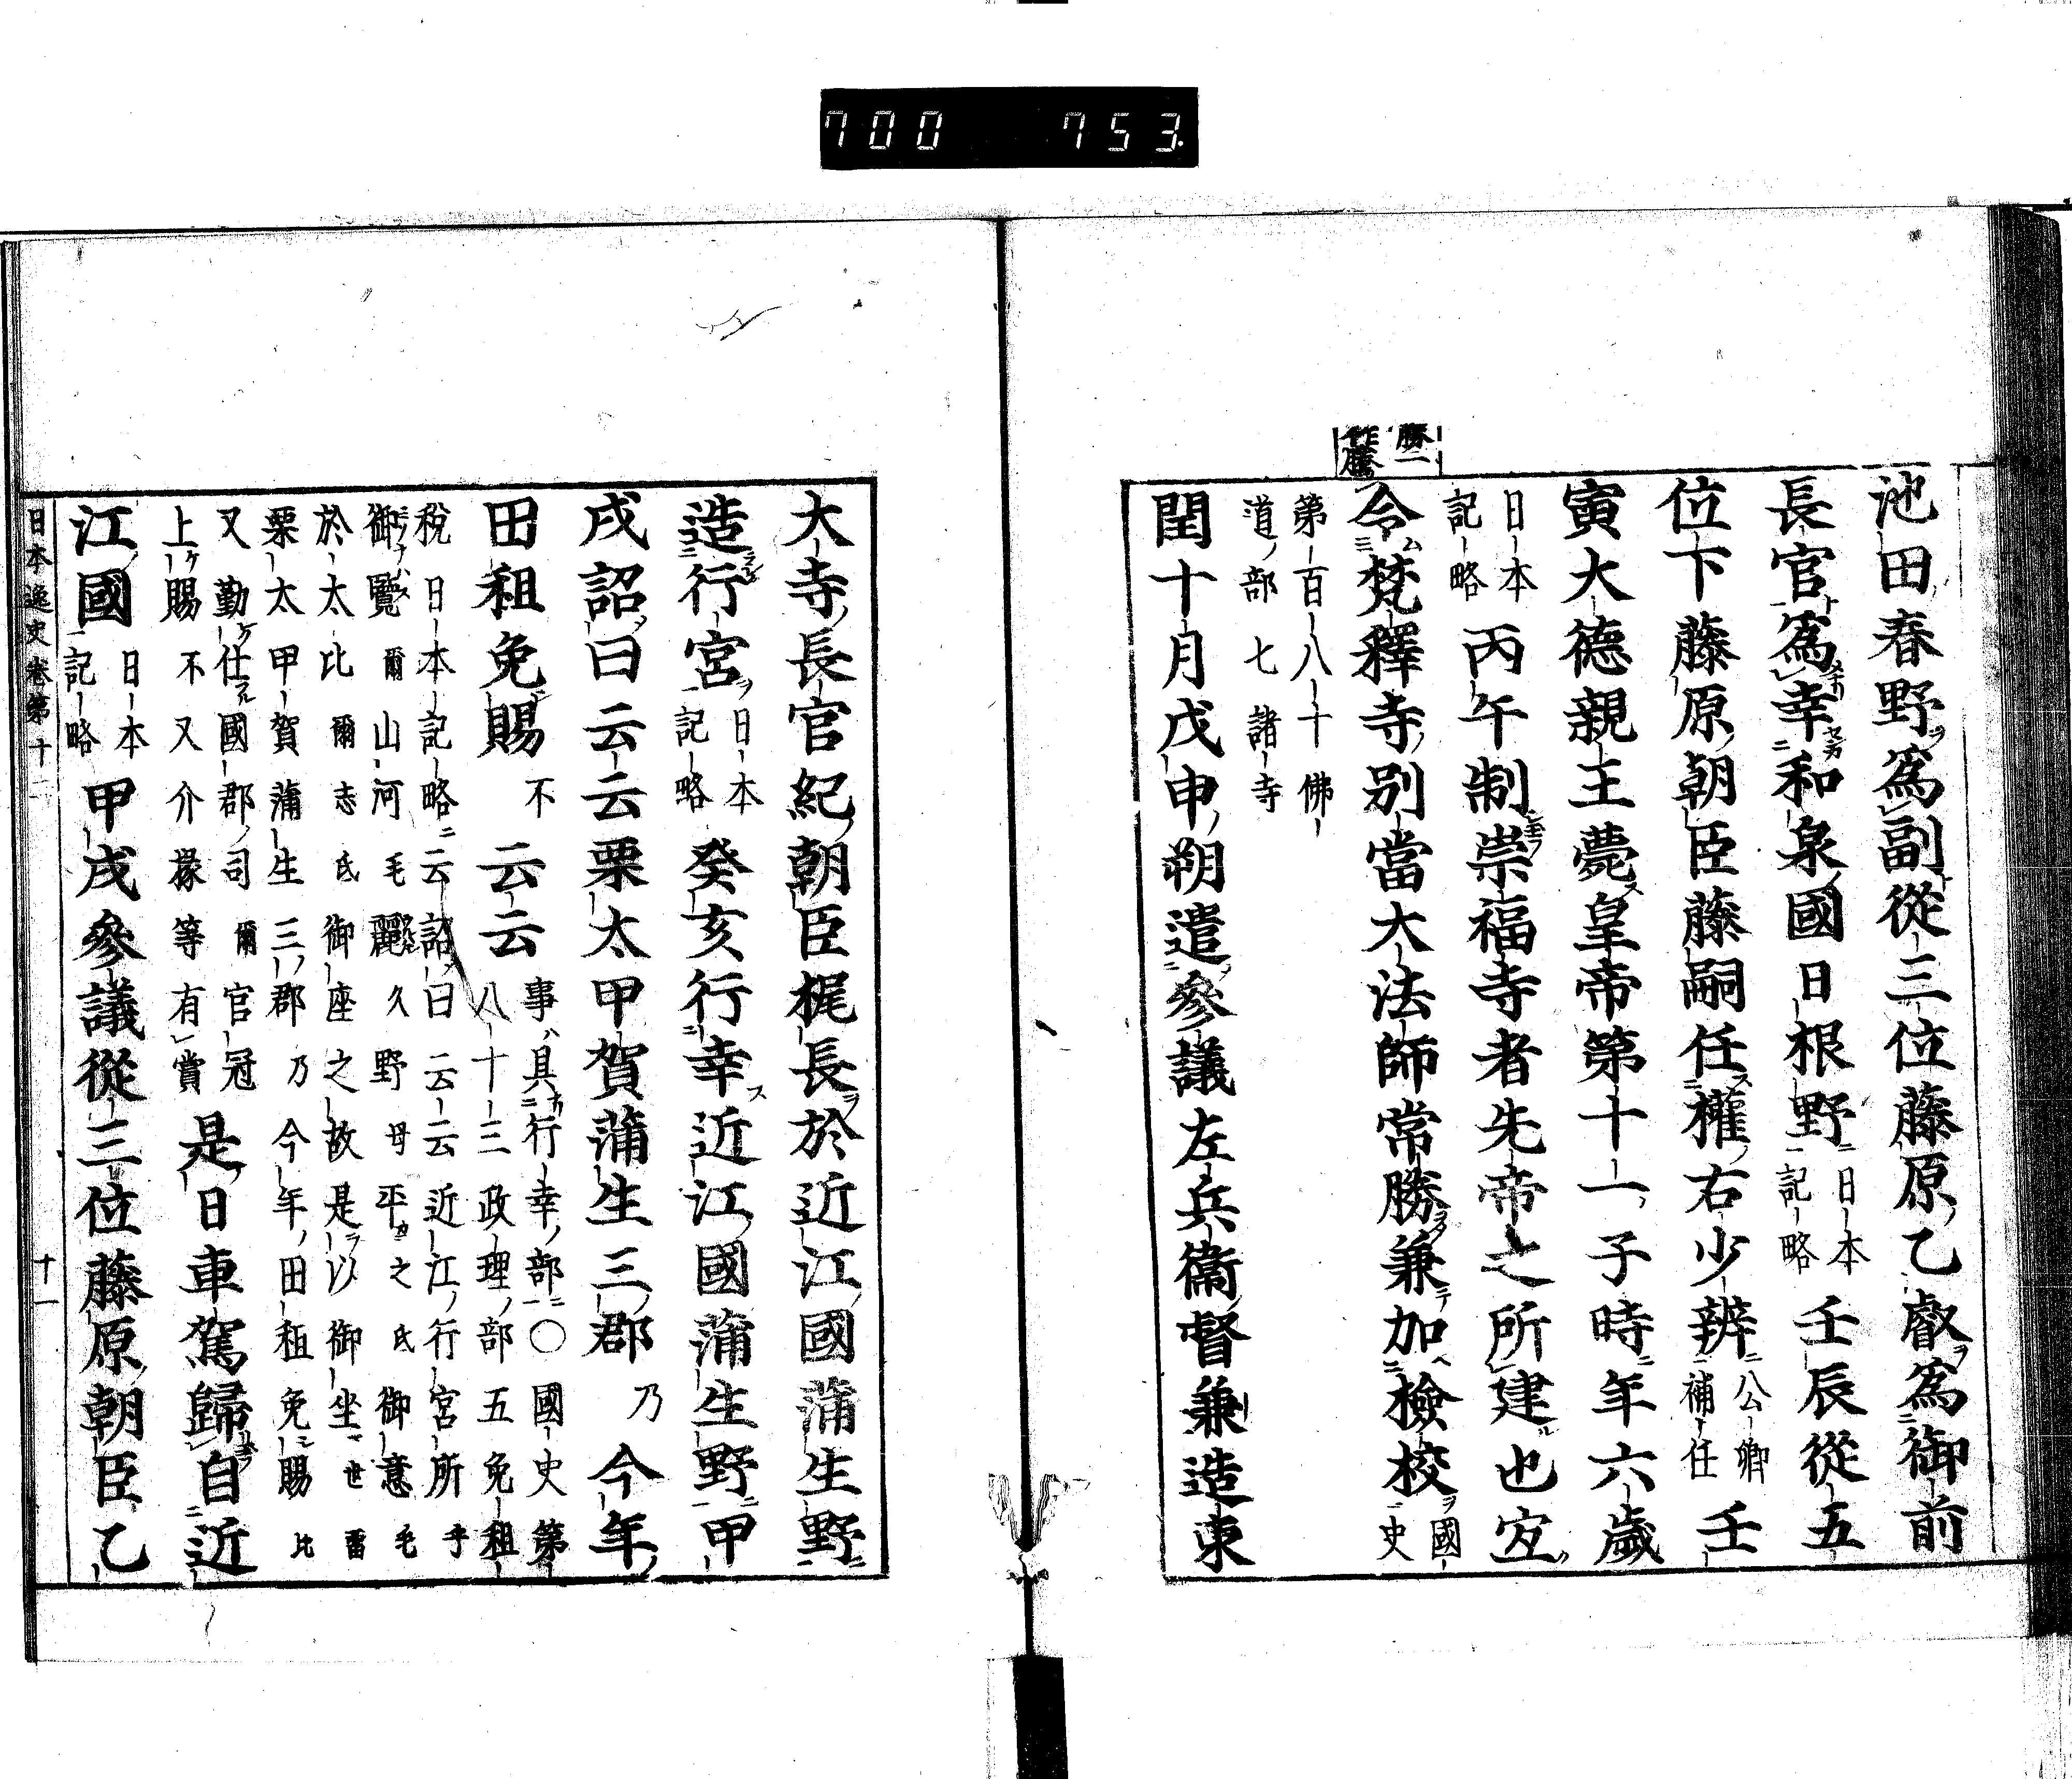 700 753.
勝一
作騰
池田春野爲副從三位藤原乙叡爲御前
長官爲幸和泉國日根野日本記略壬辰從五
位下藤原朝臣藤嗣任權右少辨公卿補任壬
寅大德親王薨皇帝第十一子時年六歲
日本記略丙午制崇福寺者先帝之所建也宜
令梵釋寺別當大法師常勝兼加檢校國史
第百八十佛道部七諸寺
閏十月戊申朔遣參議左兵衞督兼造東
大寺長官紀朝臣梶長於近江國蒲生野
造行宮日本記略癸亥行幸近江國蒲生野甲
戌詔曰云云栗太甲賀蒲生三郡乃今年
田租免賜不云云事具行幸部○國史第八十三政理部五免租
稅日本記略云詔曰云云近江行宮所乎
御覽爾山河毛麗久野母平之氐御意毛
於太比爾志氐御座之故是以御坐世留
栗太甲賀蒲生三郡乃今年田租免賜比
又勤仕國郡司爾官冠
上賜不又介掾等有賞是日車駕歸自近
江國日本記略甲戌參議從三位藤原朝臣乙
日本逸史卷第十二 十一